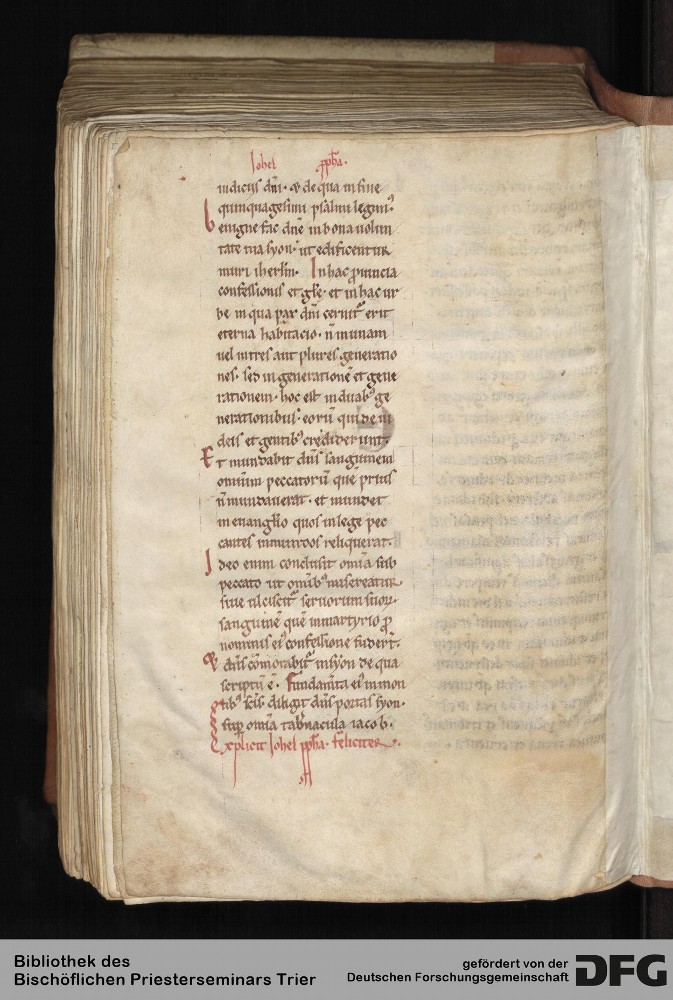 Iohel ꝓph̅a.
iudiciis dn̅i. ⁊ de qua in fine
quinquagesimi psalmi legim᷒
benigne fac dn̅e in bona volun
tate tua syon. ut edificentur
muri ih̅erl̅m. In hac ꝓvincia
confessionis et gl̅e. et in hac ur
be in qua pax dn̅i cernit᷑ erit
eterna habitacio. n̅ in unam
uel in tres aut plures generatio
nes. sed in generatione̅ et gene
rationem. hoc est in duab᷒ ge
nerationibus. eoru̅ qui de iu
deis et gentib᷒ crediderunt.
Et mundabit dn̅s sanguinem
omnium peccatoru̅ que̅ prius
n̅ mundauerat. et mundet
in euangl̅io quos in lege pec
cantes inmundos reliquerat.
Ideo enim conclusit om̅ia sub
peccato ut om̅ib᷒ misereatur
siue ulciscit᷑ seruorum suoꝝ
sanguine̅ que̅ in martyrio ꝓ
nominis ei᷒ confessione fuder̅t.
⁊ dn̅s co̅morabit᷑ in syon de qua
scriptu̅ e̅. Fundam̅ta ei᷒ in mon
tib᷒ sc̅is. diligit dn̅s portas syon.
sup̅ om̅ia tab̅nacula iacob.
Explicit Iohel ꝓph̅a. feliciter.
Bibliothek des
Bischöflichen Priesterseminars Trier
gefördert von der
Deutschen Forschungsgemeinschaft
DFG